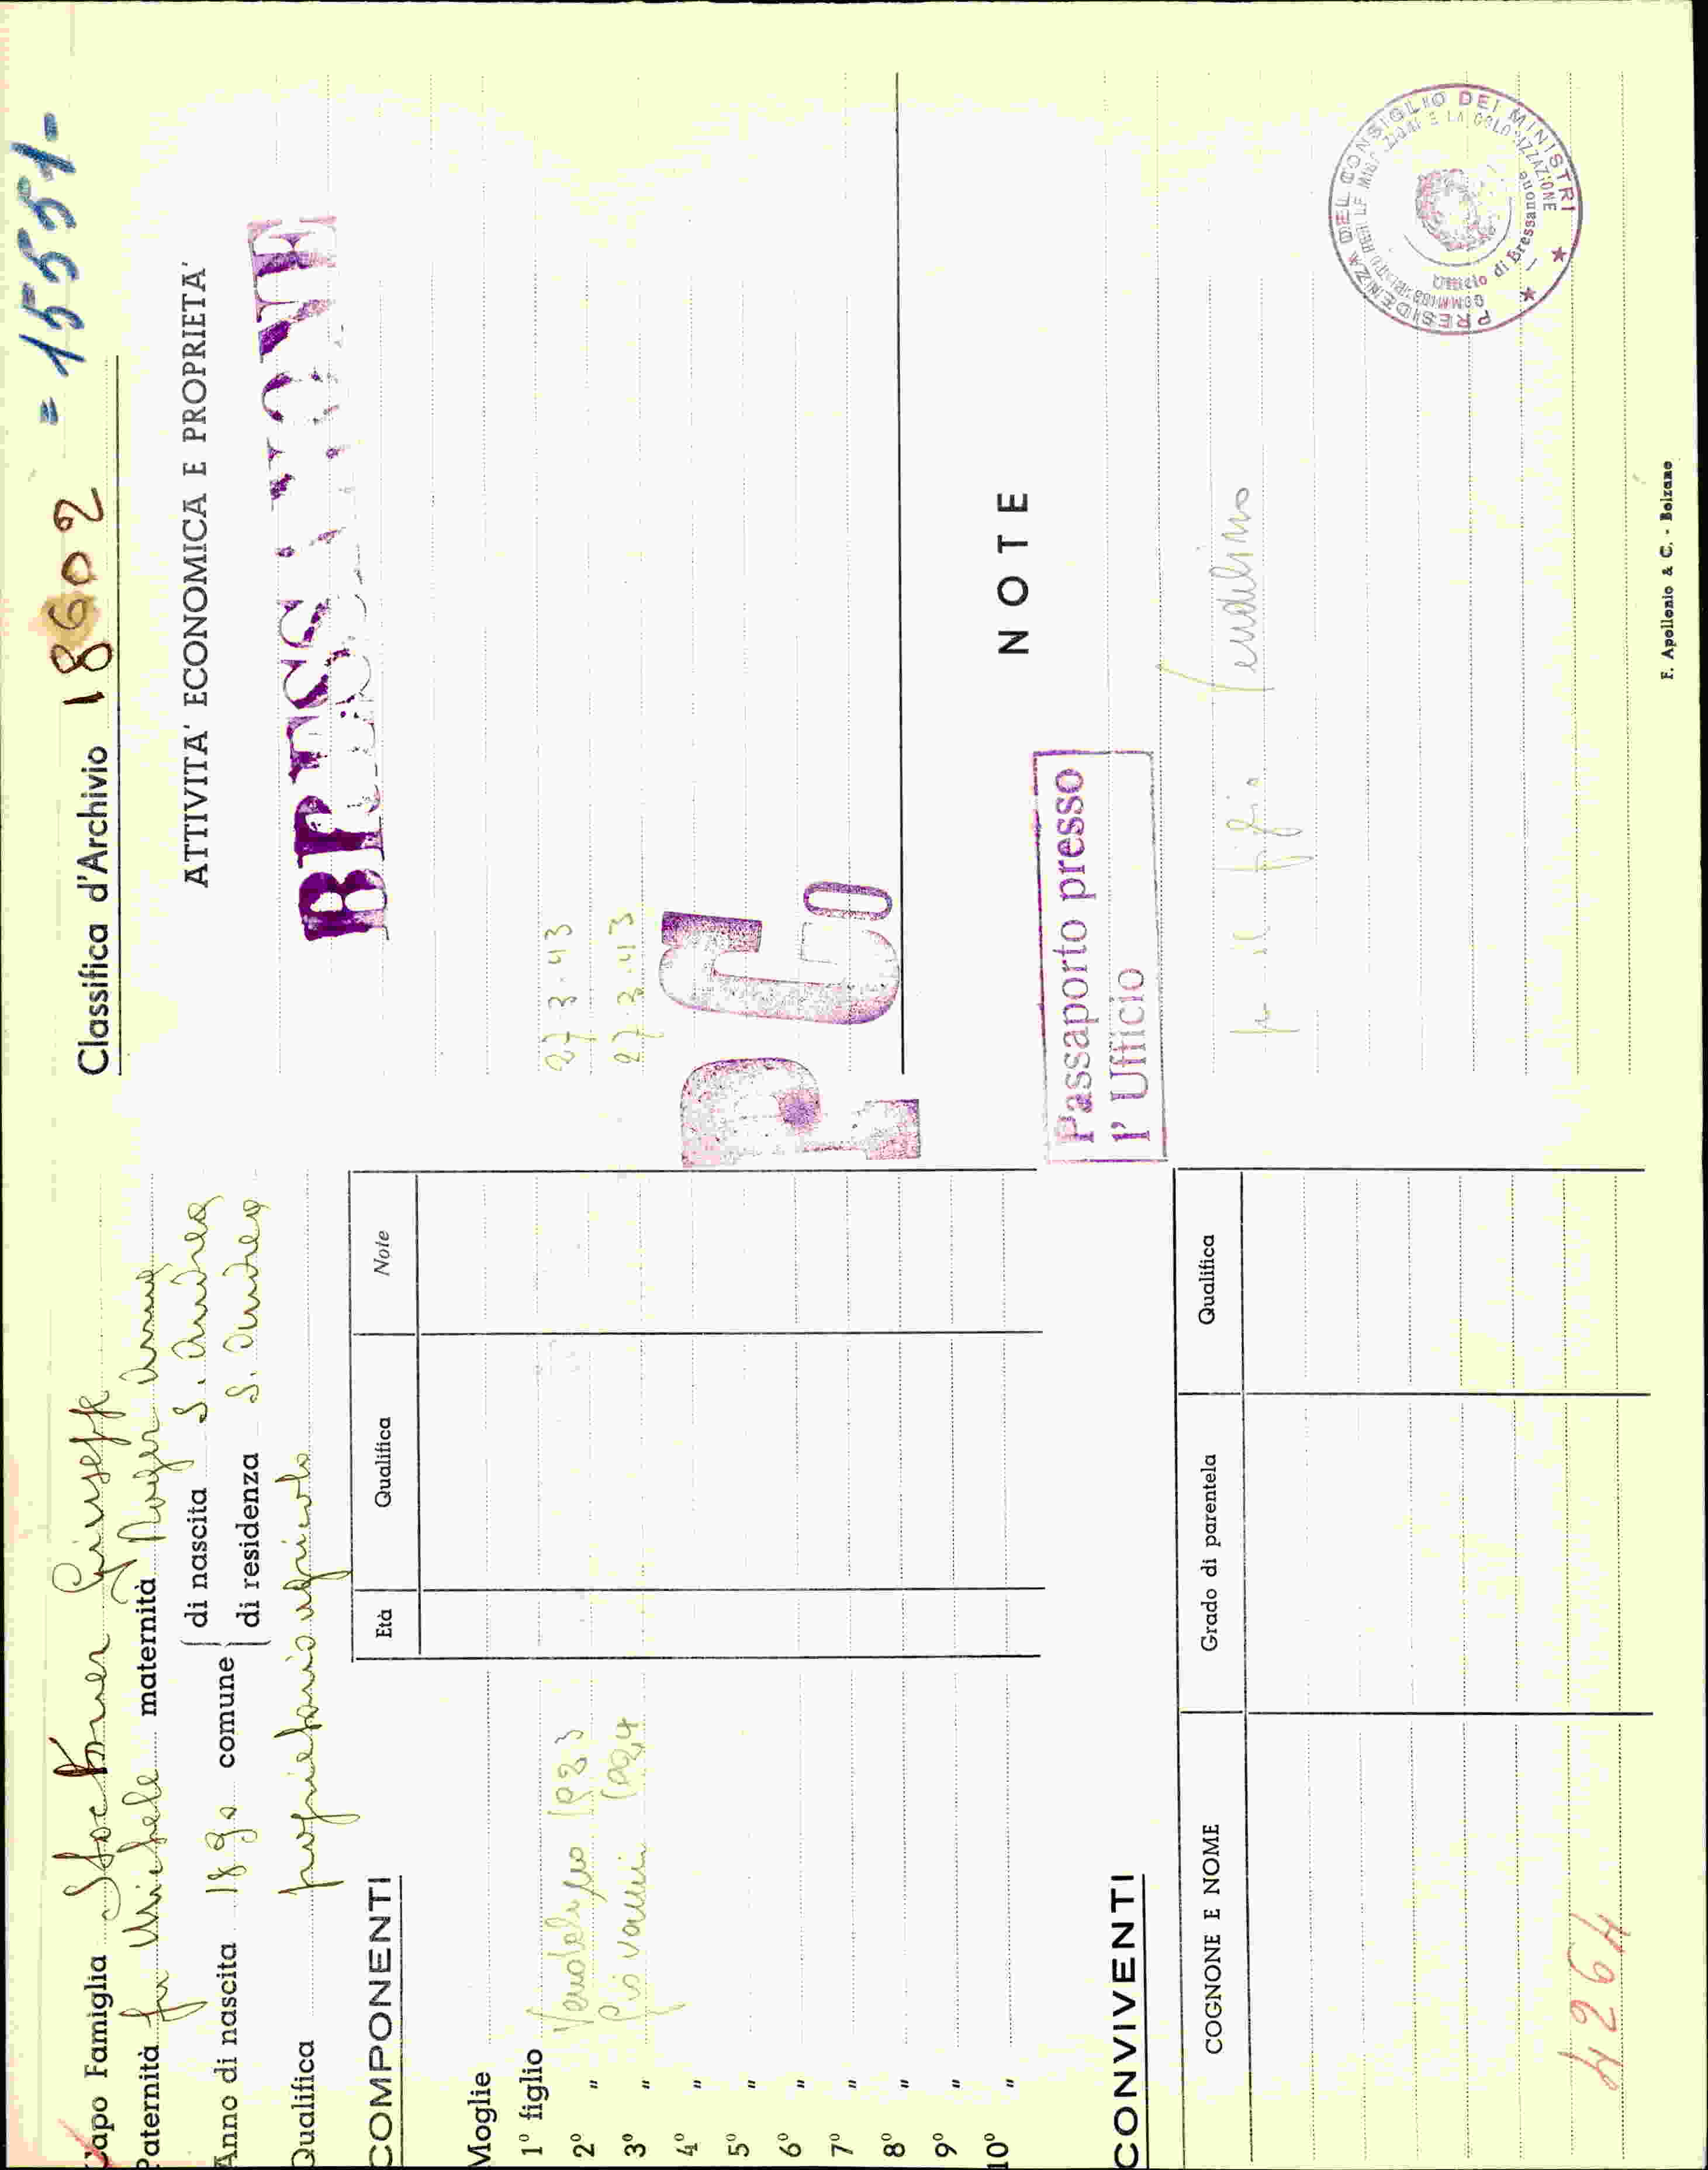 Capo Famiglia Stockner Giuseppe
Paternità fu Michele maternità Anna
Anno di nascita 1890 comune di nascita S. Andrea
di residenza S. Andrea
Qualifica proprietario agricolo
COMPONENTI
Età Qualifica Note
Moglie
1º figlio Vendelino 1923
2º " Giovanni 1924
3º "
4º "
5º "
6º "
7º "
8º "
9º "
10º "
CONVIVENTI
COGNONE E NOME Grado di parentela Qualifica
4264
Classifica d'Archivio 18602 = 15551-
ATTIVITA' ECONOMICA E PROPRIETA'
BRESSANONE
27 3 43
27.3.43
NOTE
Passaporto presso
l' Ufficio
il figlio Vendelino
PRESIDENZA DEL CONSIGLIO DEI MINISTRI
COMMISSARIATO PER LE MIGRAZIONI E LA COLONIZZAZIONE
Ufficio di Bressanone
F. Apollonio & C. - Bolzano